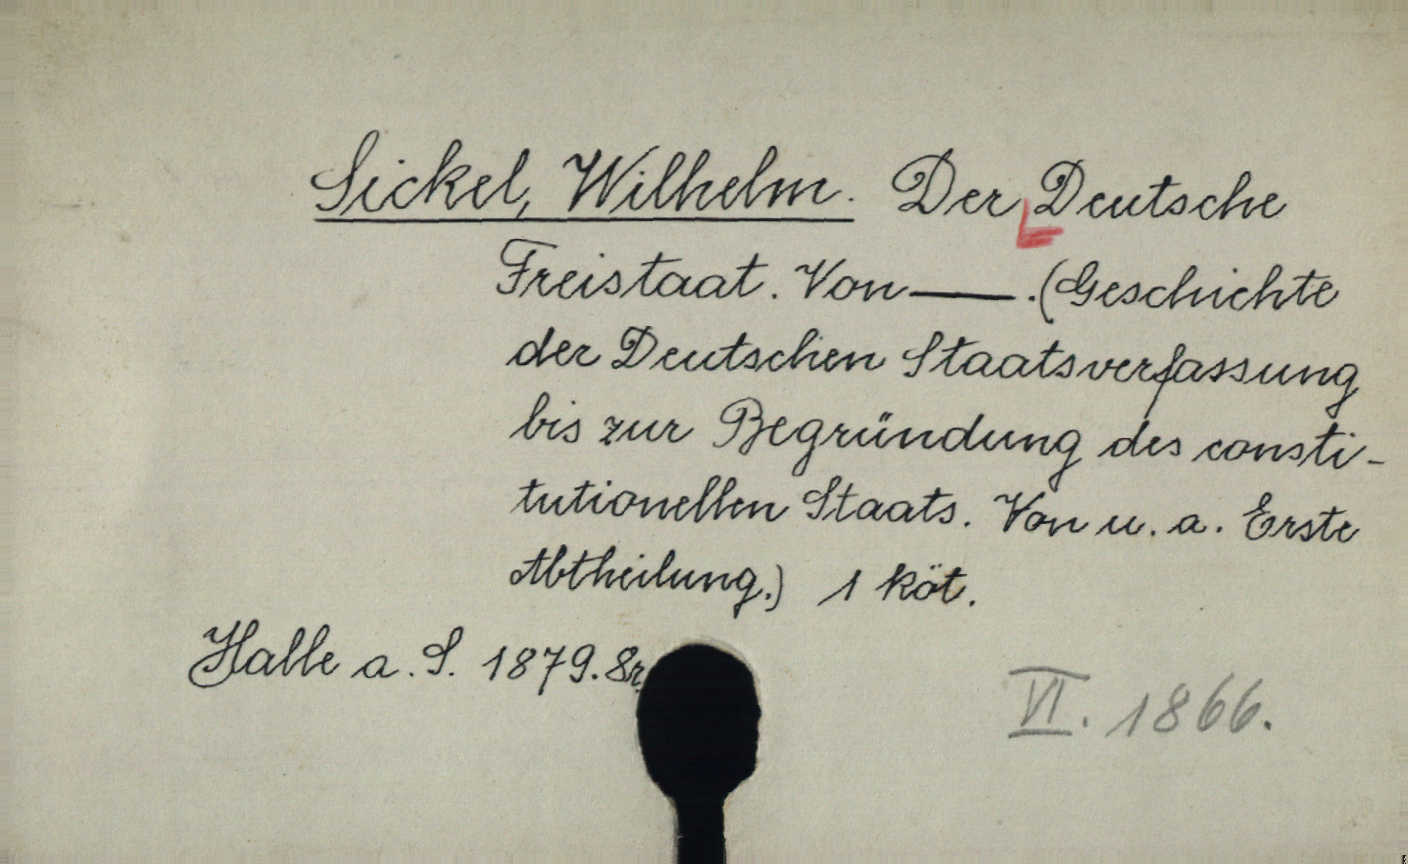 Sickel, Wilhelm. Der Deutsche
Freistaat. Von —— . (Geschichte
der Deutschen Staatsverfassung
bis zur Begründung des consti-
tutionellen Staats. Von u. a. Erste
Abtheilung.) 1 köt.
Halle a. S. 1879. 8r
VI. 1866.